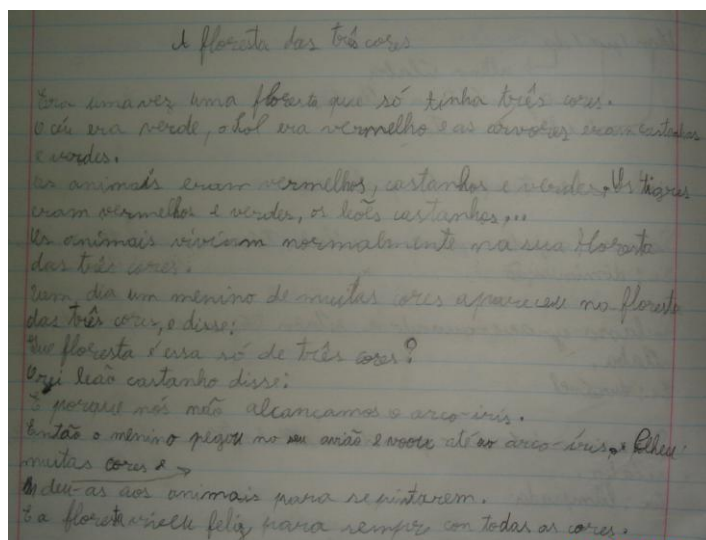 A floresta das três cores
Era uma vez uma floresta que só tinha três cores.
O céu era verde, o sol era vermelho e as árvores eram castanhas
e verdes.
Os animais eram vermelhos, castanhos e verdes. Os tigres
eram vermelhos e verdes, os leões castanhos,...
Os animais viviam normalmente na sua floresta
das três cores.
Num dia um menino de muitas cores apareceu na floresta
das três cores, e disse:
Que floresta é essa só de três cores?
O rei leão castanho disse:
É porque nós não alcançamos o arco-íris.
Então o menino pegou no seu avião e voou até ao arco-íris. Colheu
muitas cores e
deu-as aos animais para se pintarem.
E a floresta viveu feliz para sempr con todas as cores.